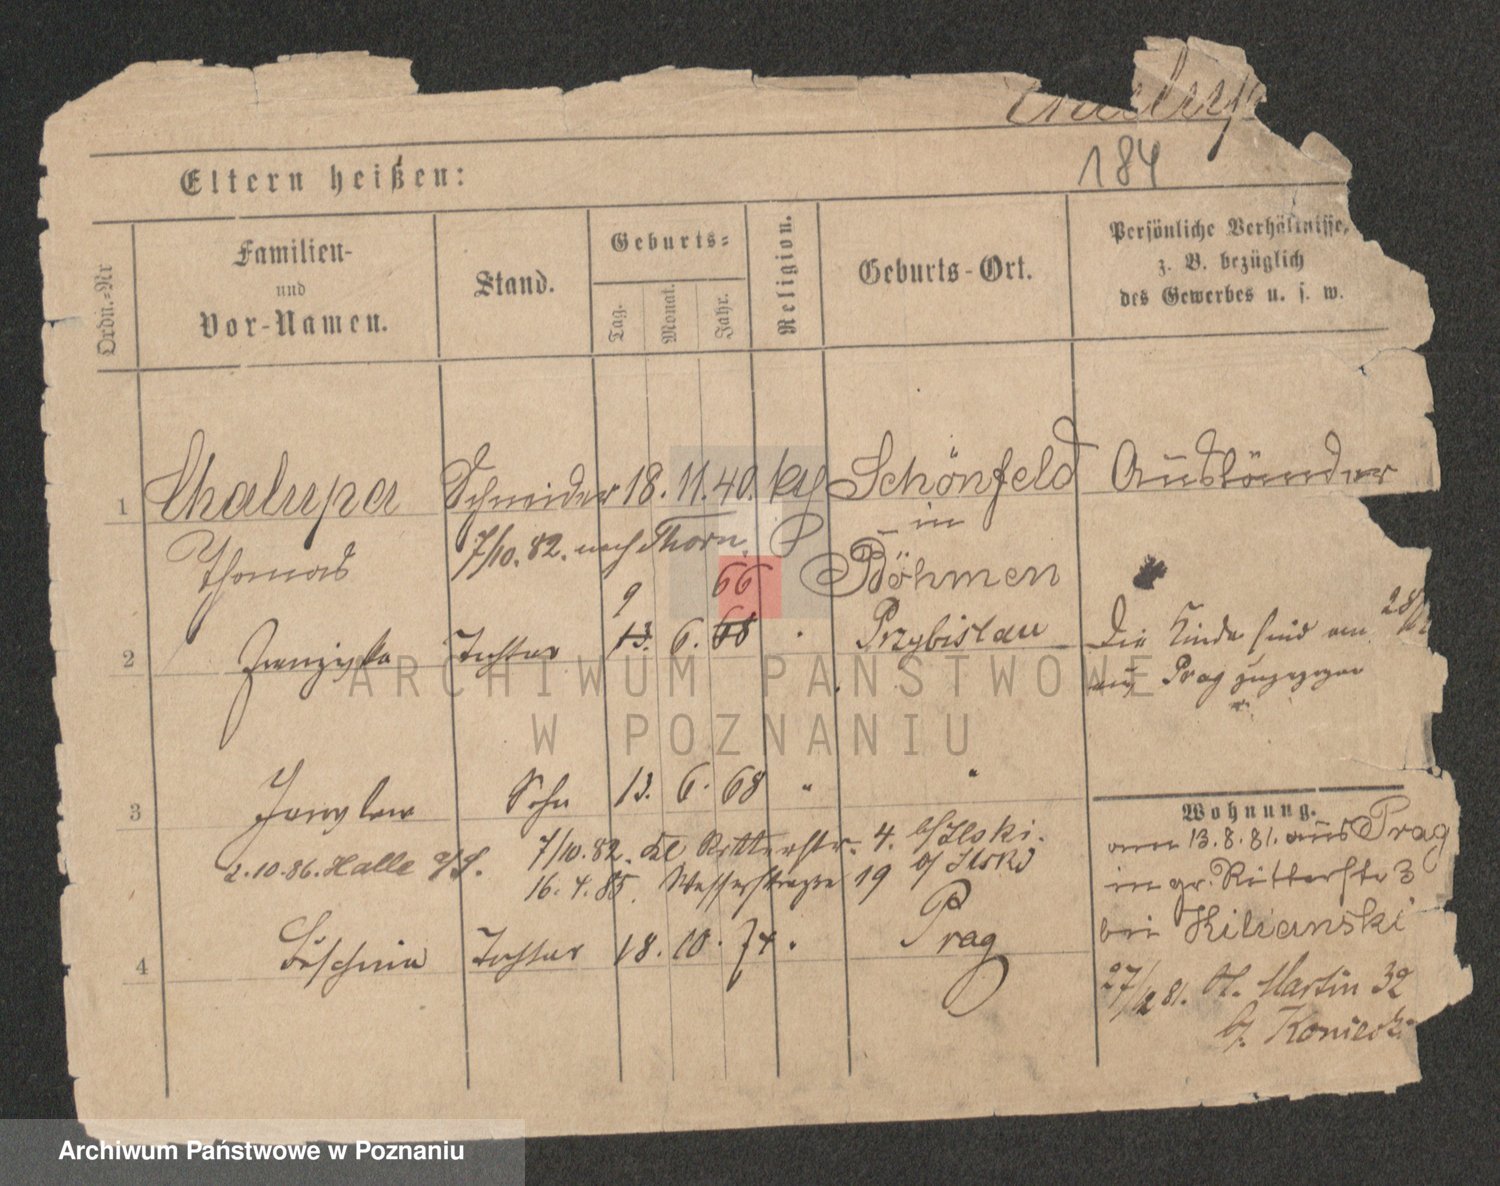 184
Eltern heißen:
Ordn.-Nr
Familien-
und
Vor-Namen.
Stand.
Geburts-
Tag.
Monat.
Jahr.
Religion.
Geburts-Ort.
Persönliche Verhältnisse,
z. B. bezüglich
des Gewerbes u. s. w.
1 Chalupa Schneider 18. 11. 40. kth Schönfeld Ausländer
Thomas 7/10. 82. nach Thorn. in
Böhmen
9 66
2 Franziska Tochter 13. 6. 68 " Przybislau
Die Kinder sind am 28/
aus Prag zugezogen
3 Sohn 13. 6. 68 " "
7/10. 82. Kl Ritterstr. 4. b/Ilski.
2.10.86. Halle a/S. 16. 4. 85. Wasserstraße 19 b/Ilski
4 Tochter 18. 10. 74. Prag
Wohnung.
am 13.8.81. aus Prag
in gr. Ritterstr 3
bei Kilianski
27/12 81. St. Martin 32
b/.
ARCHIWUM PAŃSTWOWE
W POZNANIU
Archiwum Państwowe w Poznaniu